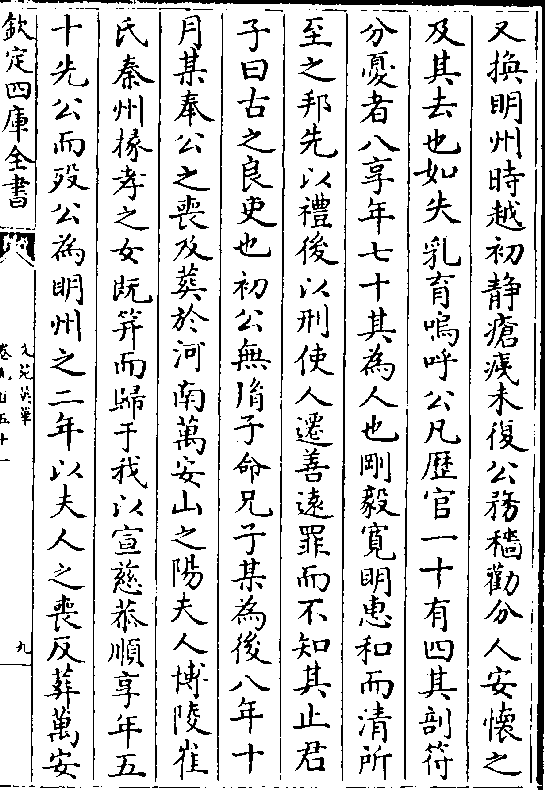 又換明州時越初静瘡痍未復公務穡勸分人安懷之
及其去也如失乳育嗚呼公凡歷官一十有四其剖符
分憂者八享年七十其為人也剛毅寛明惠和而清所
至之邦先以禮後以刑使人遷善遠罪而不知其止君
子曰古之良吏也初公無𦙍子命兄子某為後八年十
月某奉公之喪及葬於河南萬安山之陽夫人博陵崔
氏秦州掾孝之女既笄而歸于我以宣慈恭順享年五
十先公而殁公為明州之二年以夫人之喪反葬萬安
欽定四庫全書
文苑英華
卷九百五十一
九